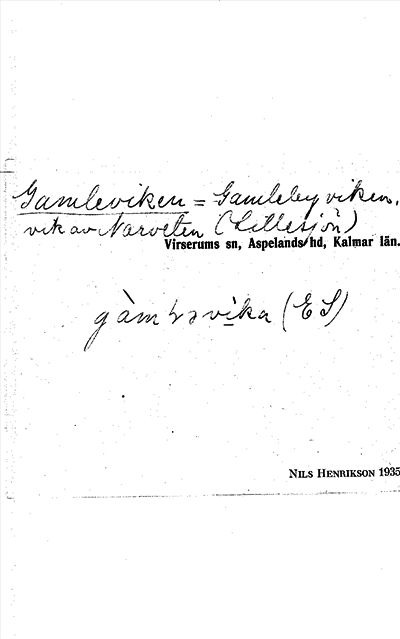 Gamleviken = Gamlebyviken,
vik av Narveten (Lillesjön)
Virserums sn, Aspelands hd, Kalmar län.
gàmləvìka (ES)
NILS HENRIKSON 1935